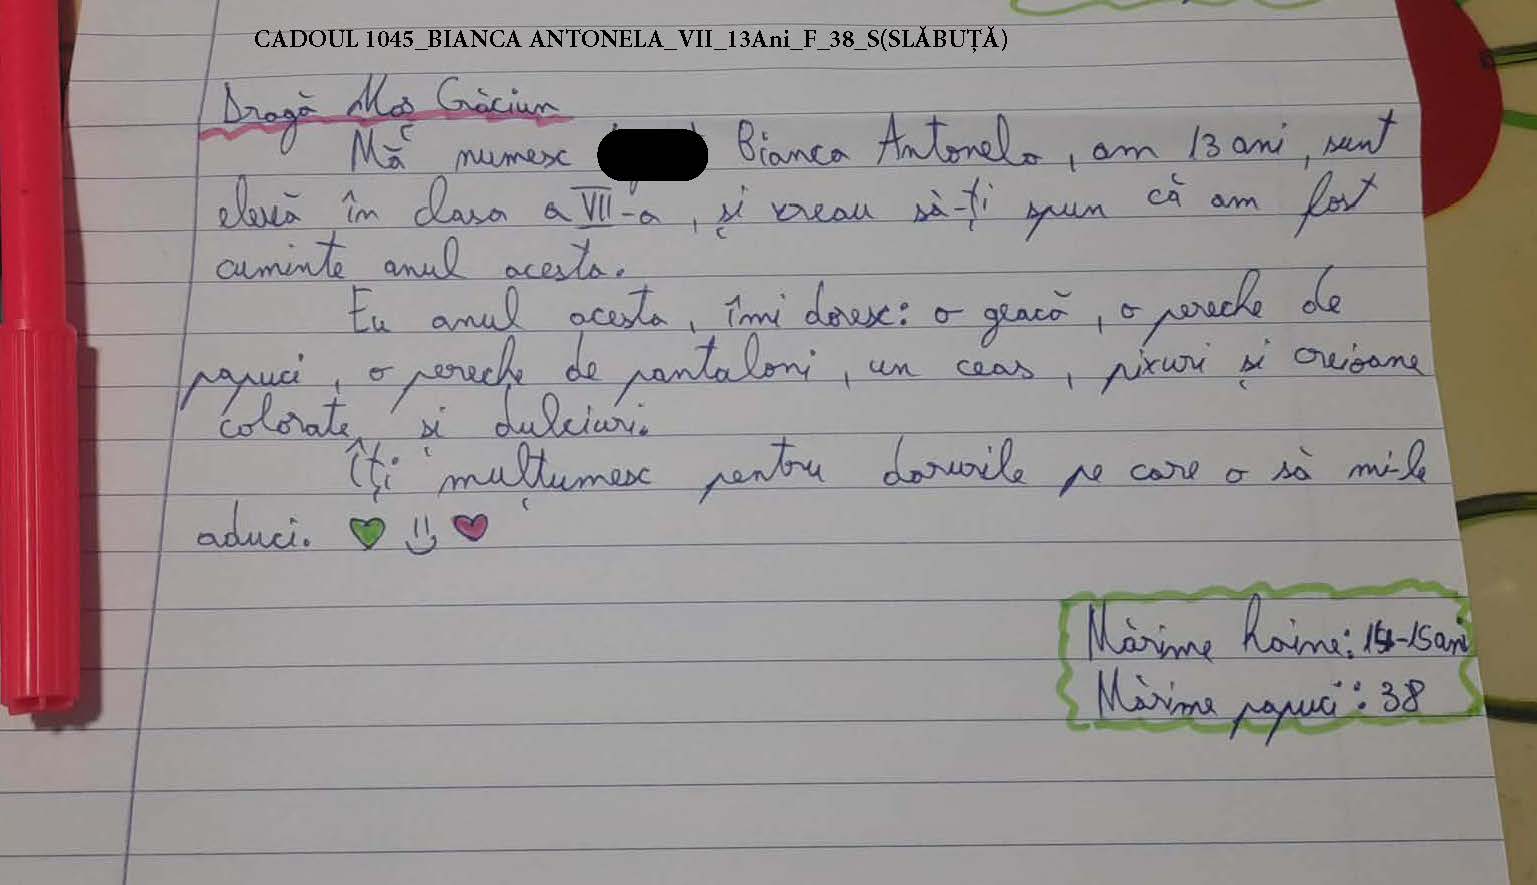 CADOUL 1045_BIANCA ANTONELA_VII_13Ani_F_38_S(SLĂBUȚĂ)
Dragă Moș Crăciun
Mă numesc Bianca Antonela, am 13 ani, sunt
elevă în clasa a VII-a, și vreau să-ți spun că am fost
cuminte anul acesta.
Eu anul acesta, îmi doresc: o geacă, o pereche de
papuci, o pereche de pantaloni, un ceas, pixuri și creioane
colorate, și dulciuri.
Îți mulțumesc pentru darurile pe care o să mi-le
aduci.
Mărime haine: -15ani
Mărime papuci: 38